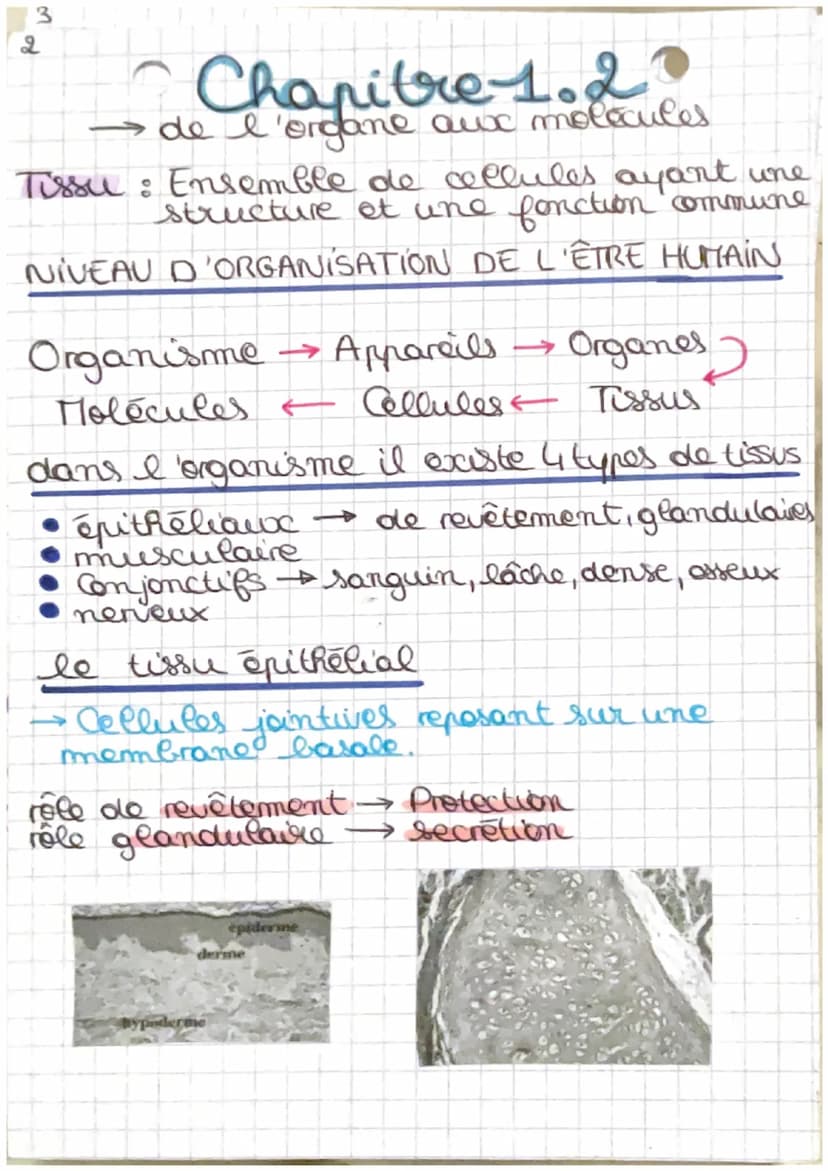 3
2
Chapitre 1.2
→ de l'organe aux molécules
Tissu : Ensemble de cellules ayant une
structure et une fonction commune
NIVEAU D'ORGANISATION DE L'ÊTRE HUMAIN
Organisme → Appareils → Organes
Molécules ← Cellules ← Tissus
dans l'organisme il existe 4 types de tissus
• épithéliaux → de revêtement, glandulaires
• musculaire
• Conjonctifs → sanguin, lâche, dense, osseux
• nerveux
le tissu épithélial
→ Cellules jointives reposant sur une
membrane basale.
rôle de revêtement → Protection
rôle glandulaire → secrétion
épiderme
derme
hypoderme